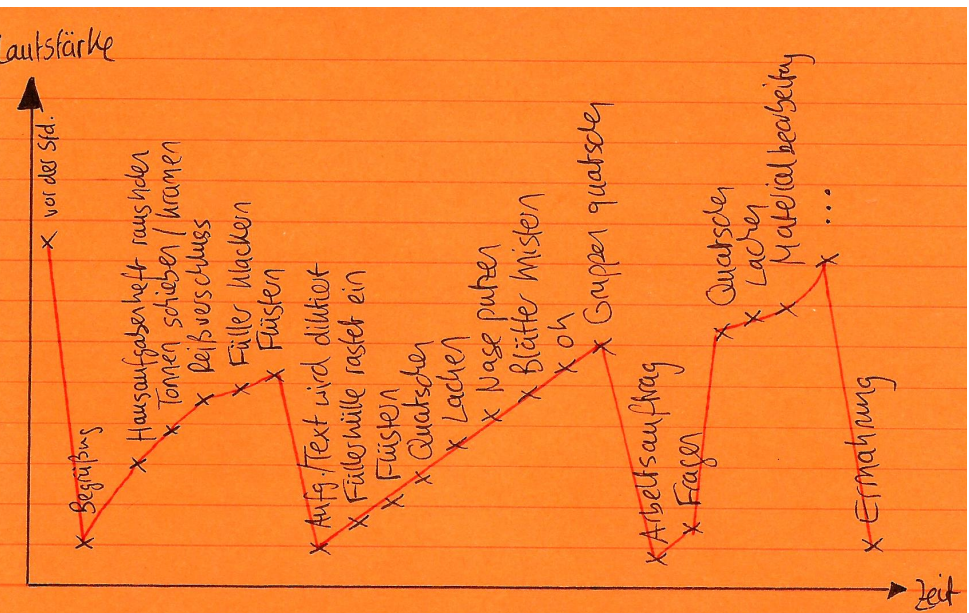 Lautstärke
vor der Std.
Begrüßung
Hausaufgabenheft rausholen
Tonnen schieben / kramen
Reißverschluss
Füller klackern
Flüstern
Aufg./Text wird diktiert
Füllerhülle rastet ein
Flüstern
Quatschen
Lachen
Nase putzen
Blätter knistern
oh
Gruppen quatschen
Arbeitsauftrag
Fragen
Quatschen
Lachen
Materialbearbeitung
...
Ermahnung
Zeit